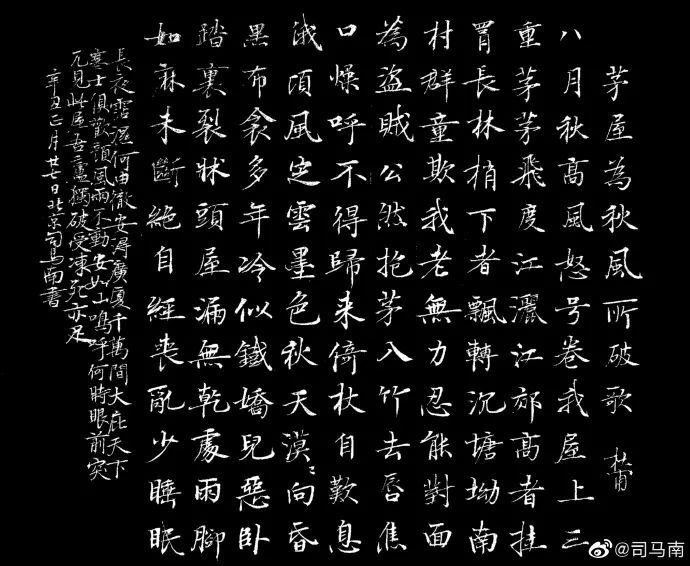 茅屋為秋風所破歌
杜甫
八月秋高風怒号卷我屋上三
重茅茅飛度江灑江郊高者挂
罥長林梢下者飄轉沉塘坳南
村群童欺我老無力忍能對面
為盜賊公然抱茅入竹去唇焦
口燥呼不得歸来倚杖自歎息
俄頃風定雲墨色秋天漠〻向昏
黑布衾多年冷似鐵嬌兒惡卧
踏裏裂牀頭屋漏無乾處雨腳
如麻未斷絕自經喪亂少睡眠
長夜霑濕何由徹安得廣厦千萬間大庇天下
寒士俱歡顏風雨不動安如山嗚呼何時眼前突
兀見此屋吾廬獨破受凍死亦足
辛丑月廿七日北京司馬南書
@司马南